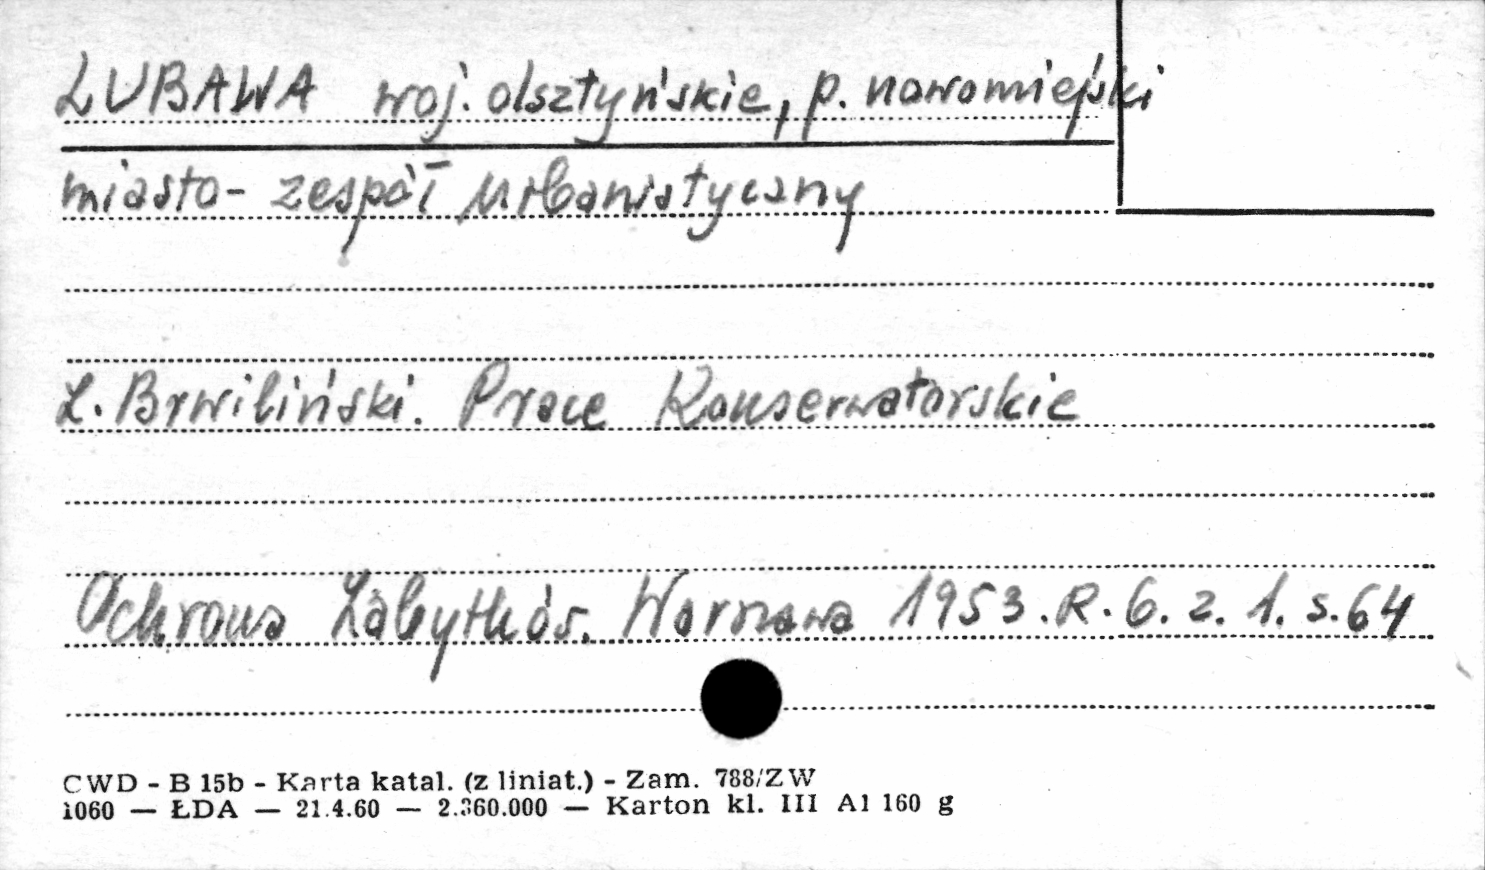 LUBAWA woj. olsztyńskie, p. nowomiejski
miasto - zespół urbanistyczny
L. Brwiliński. Prace Konserwatorskie
Ochrona Zabytków. Warszawa 1953. R. 6. z. 1. s. 64
CWD - B 15b - Karta katal. (z liniat.) - Zam. 788/ZW
1060 — ŁDA — 21.4.60 — 2.360.000 — Karton kl. III A1 160 g